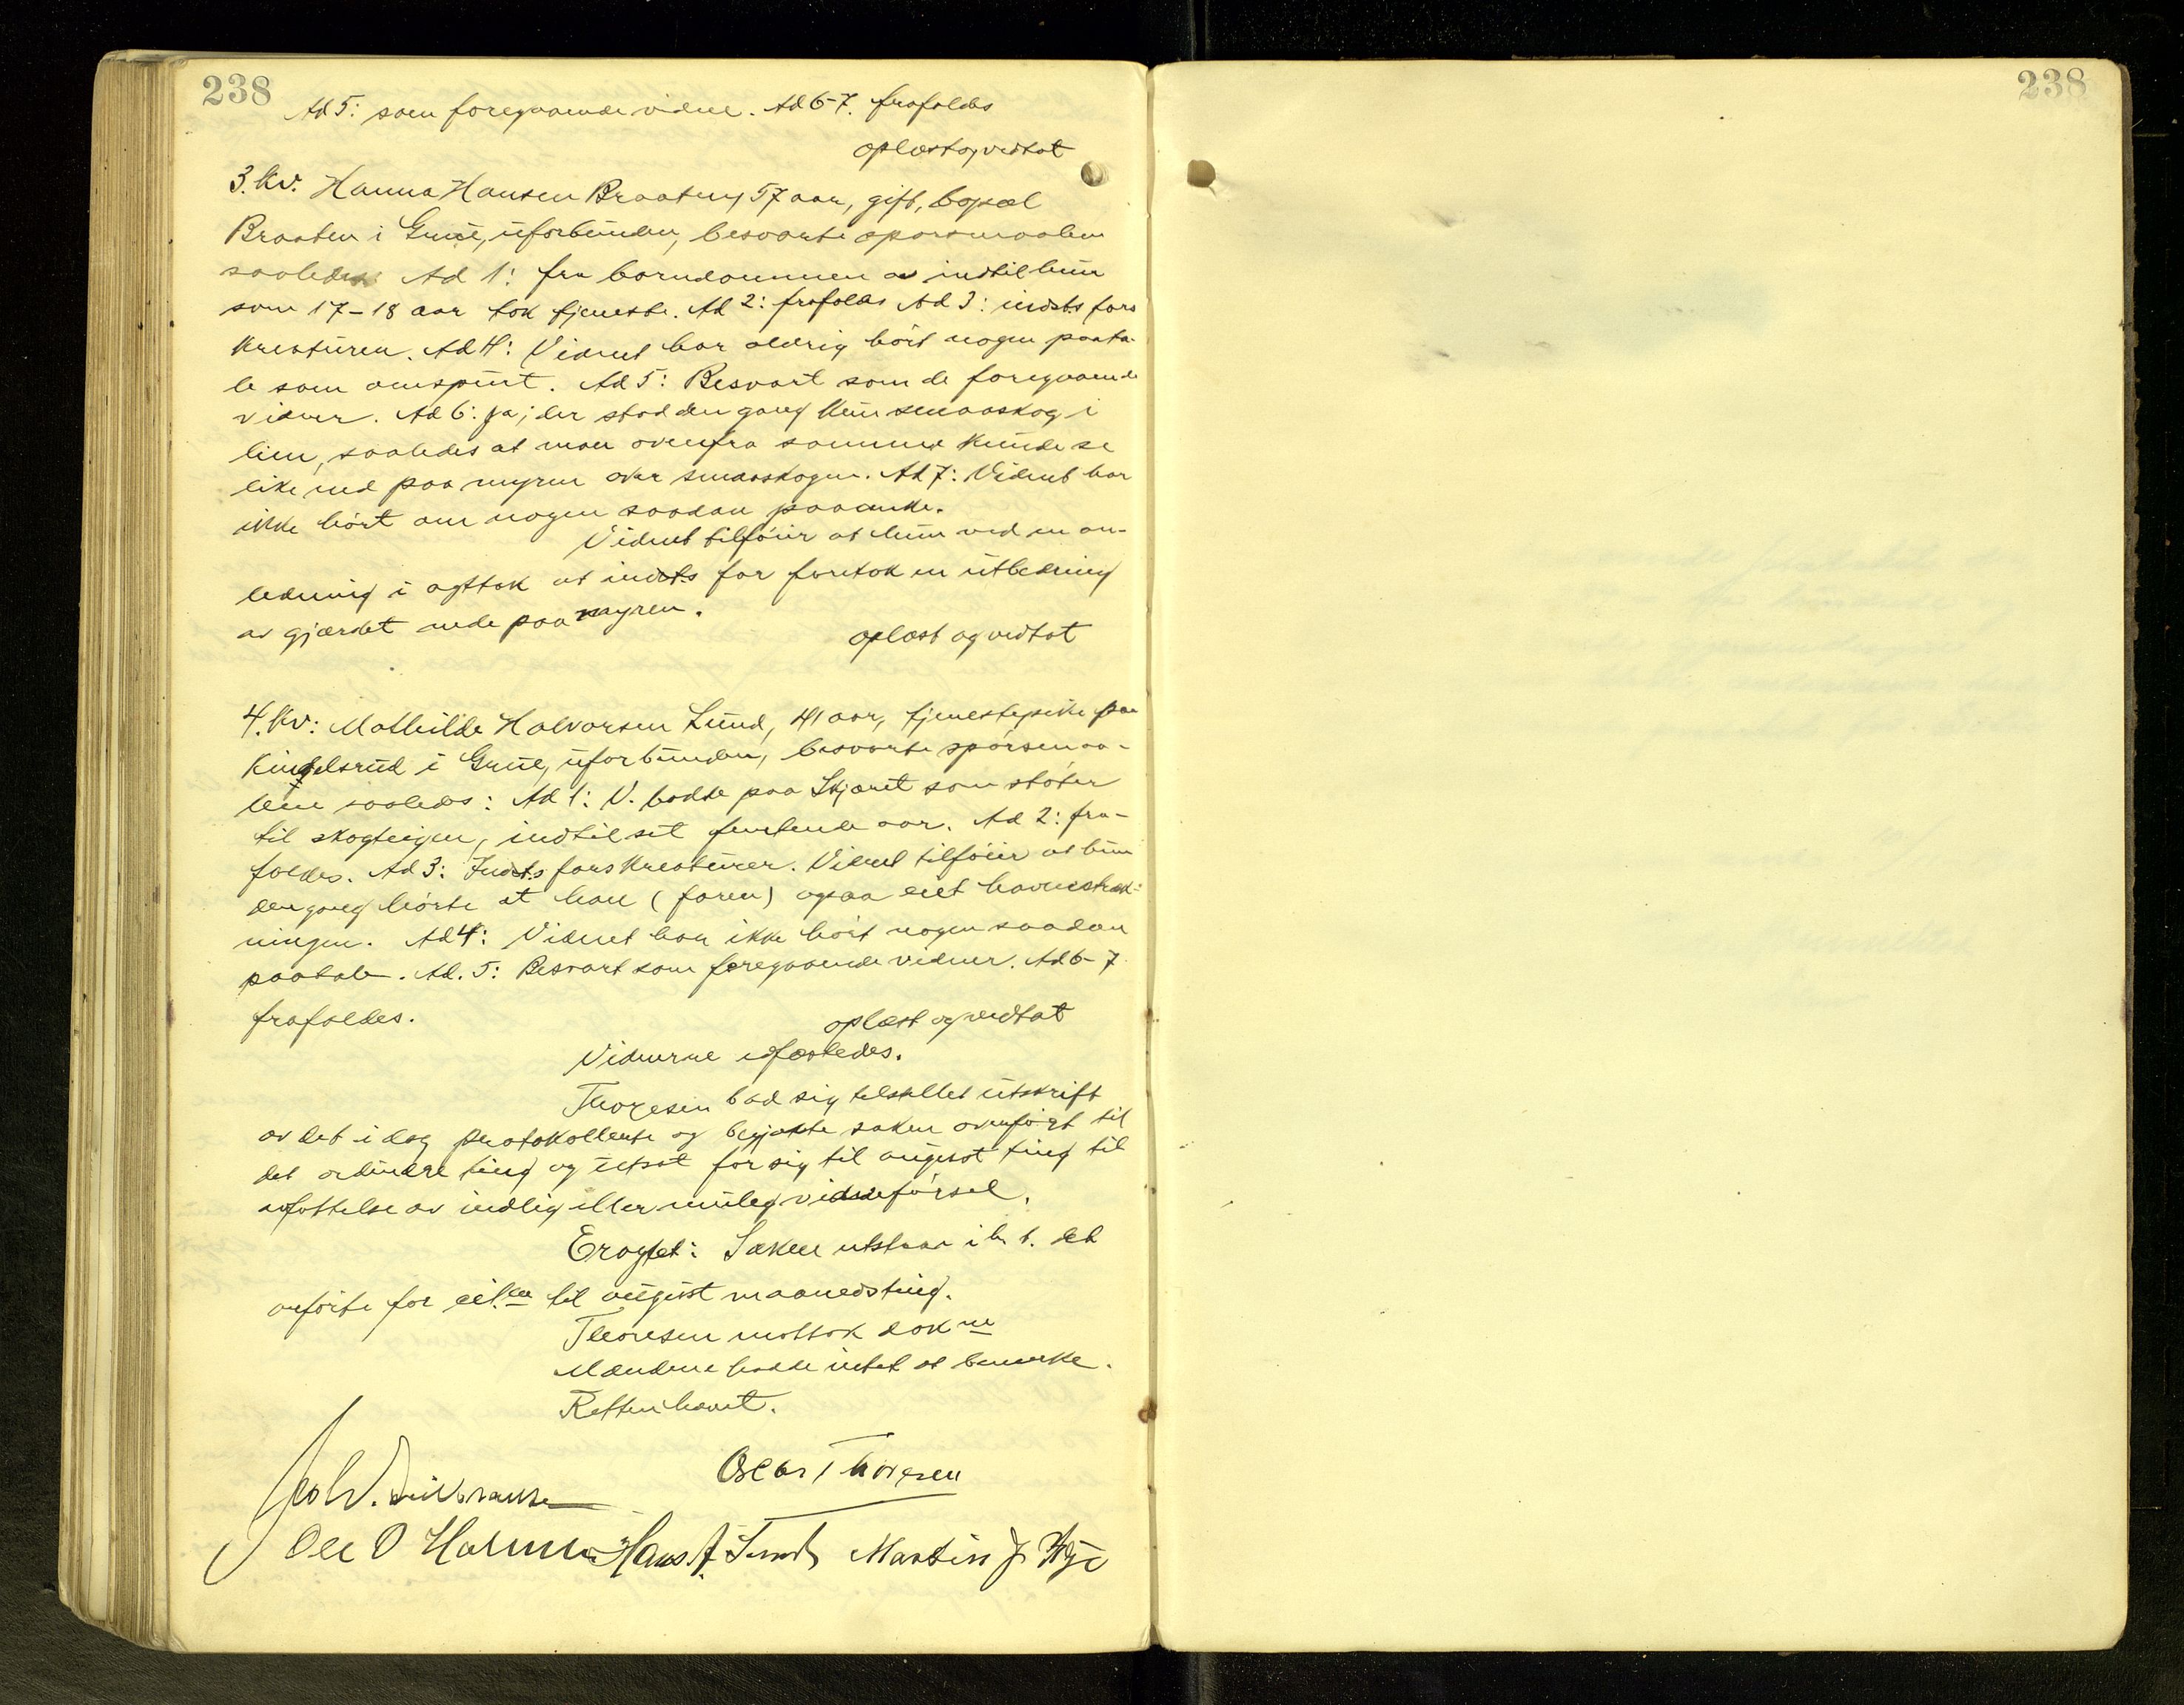 238
Ad 5: som foregaaende vidne. Ad 6-7. frafaldes
oplæst og vedtat
3. Kv. Hanna Hansen Braaten, 57 aar, gift, bopæl
Braaten i Grue, uforbunden, besvarte spørsmaalene
saaledes: Ad 1: fra barndommen av indtil hun
som 17-18 aar tok tjeneste. Ad 2: frafaldes Ad 3: indsts fars
kreaturen. Ad 4: Vidnet har aldrig hört nogen paata-
le som omspurt. Ad 5: Besvart som de foregaaende
vidner. Ad 6: Ja; der stod den gang kun smaaskog i
lien, saaledes at man ovenfra samme kunde se
like ned paa myren over smaaskogen. Ad 7: Vidnet har
ikke hört om nogen saadan paaanke.
Vidnet tilföier at hun ved en an-
ledning i agttok at indsts far foretok en utbedring
av gjærdet nede paa myren.
oplæst og vedtat
4. Kv: Mathilde Halvorsen Lund, 41 aar, tjenestepike paa
i Grue, uforbunden, besvarte spörsmaa-
lene saaledes: Ad 1: V. bodde paa Skjæret som stöter
til skogteigen, indtil sit femtende aar. Ad 2: fra-
faldes. Ad 3: Indsts fars kreaturer. Vidnet tilföier at hun
dengang hörte at han (faren) ogsaa eiet havnestræk-
ningen. Ad 4: Vidnet har ikke hört nogen saadan
paatale. Ad. 5: Besvart som foregaaende vidner. Ad 6-7
frafaldes.
oplæst og vedtat
Vidnerne edfæstedes.
Thoresen bad sig tilstillet utskrift
av det i dag protokollerte og begjærte saken overfört til
det ordinære ting og utsat for sig til august ting til
avfattelse av indlæg eller mulig vidneförsel.
Eragtet: Saken utstaar i h. t. det
anförte for cit.en til august maanedsting.
Thoresen mottok dok.ne
Mændene hadde intet at bemerke.
Retten hævet.
Oscar Thoresen
Ole O Hans A. Lund Martin J
238